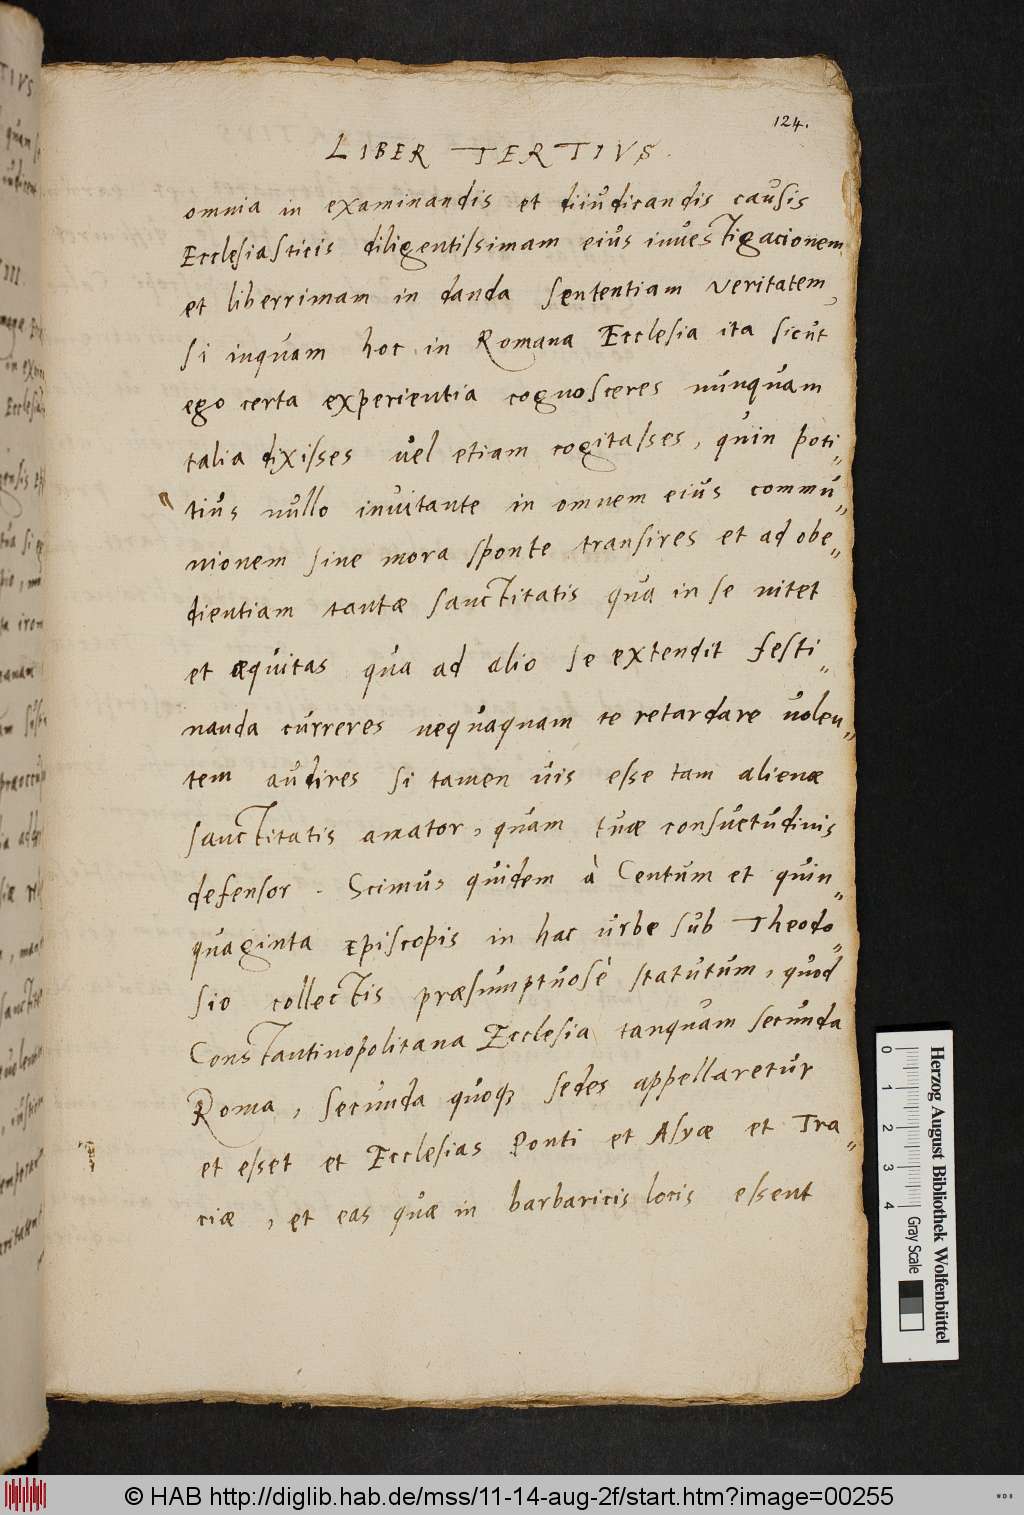 124.
LIBER TERTIVS.
omnia in examinandis et diiudicandis causis
Ecclesiasticis diligentissimam eius inuestigacionem
et liberrimam in danda sententiam veritatem,
si inquam hoc in Romana Ecclesia ita sicut
ego certa experientia cognosceres nunquam
talia dixisses uel etiam cogitasses, quin poti„
tius nullo inuitante in omnem eius commu„
nionem sine mora sponte transires et ad obe„
dientiam tantæ sanctitatis qua in se nitet
et æquitas qua ad alio se extendit festi„
nanda curreres nequaquam te retardare uolen„
tem audires si tamen uis esse tam alienæ
sanctitatis amator, quam tuæ consuetudinis
defensor. Scimus quidem à Centum et quin„
quaginta Episcopis in hac urbe sub Theodo„
sio collectis præsumptuosè statutum, quod
Constantinopolitana Ecclesia tanquam secunda
Roma, secunda quoqꝫ sedes appellaretur
et esset et Ecclesias Ponti et Asyæ et Tra„
ciæ, et eas quæ in barbaricis locis essent
Herzog August Bibliothek Wolfenbüttel
0 1 2 3 4 Gray Scale
© HAB http://diglib.hab.de/mss/11-14-aug-2f/start.htm?image=00255